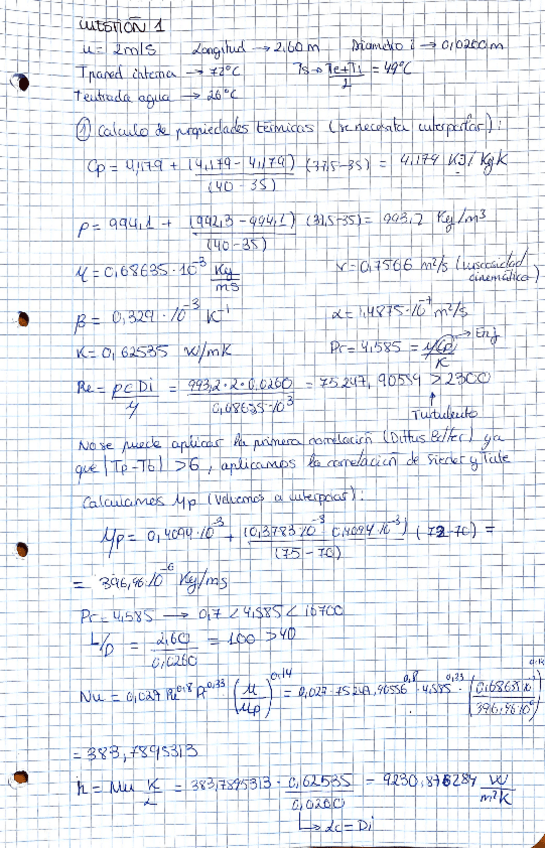 CUESTIÓN 1
u = 2m/s Longitud → 2,60 m Diametro i → 0,0260 m
Tpared interna → 72°C Ts → Te+Ti/2 = 49°C
Tentrada agua → 26°C
① Calculo de propiedades térmicas (se necesita interpolar):
Cp = 4,179 + (4,179 - 4,179)/(40-35) (37,5-35) = 4,179 KJ/KgK
ρ = 994,1 + (992,3-994,1)/(40-35) (37,5-35) = 993,2 Kg/m³
μ = 0,68635·10⁻³ Kg/ms ν = 0,7566 m²/s (viscosidad cinemática)
β = 0,329·10⁻³ K⁻¹ α = 1,4875·10⁻⁷ m²/s
K = 0,62535 W/mK Pr = 4,585 = μCp/K
Re = ρcDi/μ = 993,2·2·0,0260/0,68635·10³ = 75247,90554 > 2300
Turbulento
No se puede aplicar la primera correlación (Dittus Boelter) ya
que |Tp-Tb| > 6, aplicamos la correlación de Sieder y Tate
Calculamos μp (volvemos a interpolar):
μp = 0,4094·10⁻³ + (0,3783·10⁻³ 0,4094·10⁻³)/(75-70) (72-70) =
= 396,96·10⁻⁶ Kg/ms
Pr = 4,585 → 0,7 < 4,585 < 16700
L/D = 2,60/0,0260 = 100 > 40
Nu = 0,027 Re^0,8 Pr^0,33 (μ/μp)^0,14 = 0,027·75247,90556^0,8·4,585^0,33·
= 383,7895313
h = Nu K/L = 383,7895313 · 0,62535/0,0260 = 9230,876287 W/m²K
↳ Lc = Di